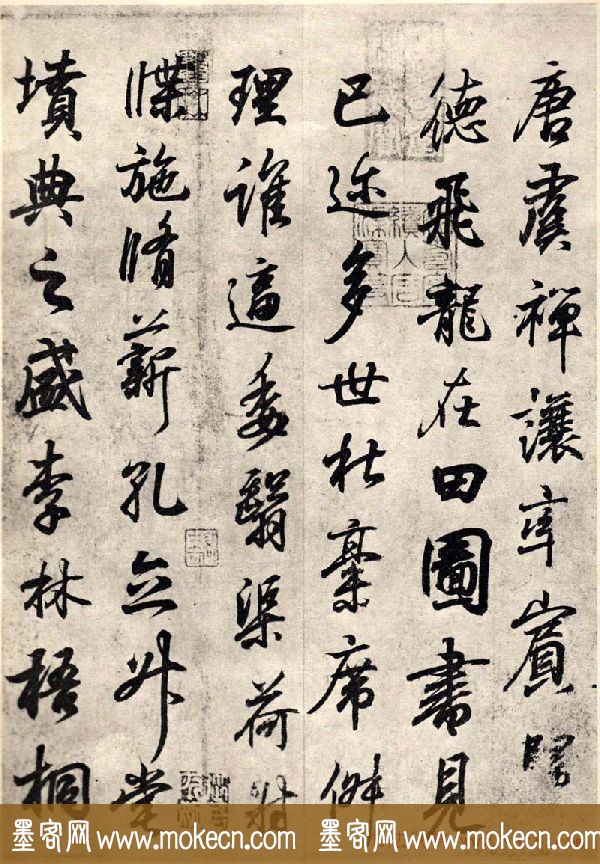 唐虞禪讓率賓
德飛龍在田圖書見
巳迩多世杜稾席
理誰逼委翳渠荷
牒施脩薪孔立升堂
墳典之盛李林梧桐
墨客网 www.mokecn.com 墨客网 www.mokecn.com